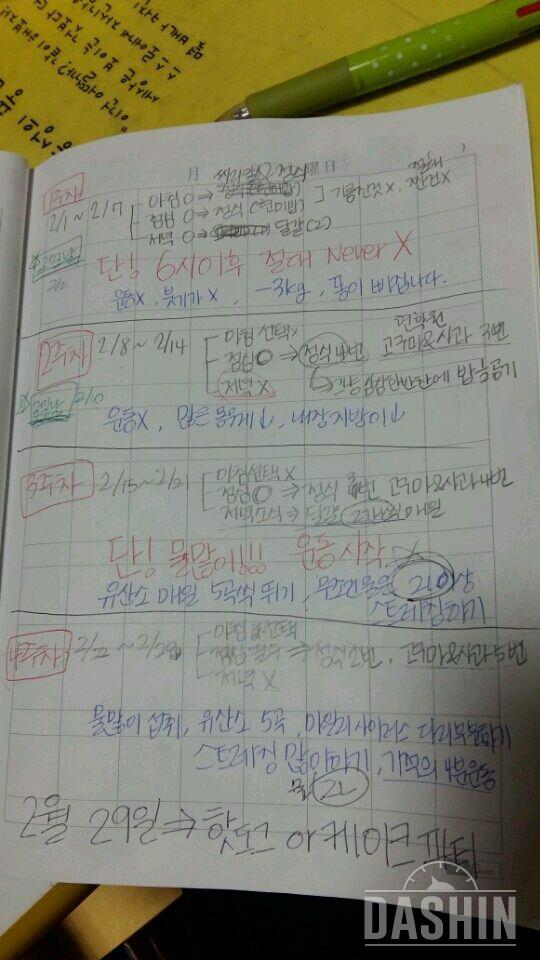 月 日
1주차
2/1 ~ 2/7
아침 O ⇒
점심 O ⇒ 정식 (현미밥)
저녁 O ⇒ 달걀(2)
기름진것 X, 짠건 X
2/2
단! 6시이후 절대 Never X
운동X, 붓기가 X, -3kg, 똥이 빠집니다.
2주차 2/8 ~ 2/14
아침 선택X
점심O ⇒ 정식 4번 고구마&사과 3번
저녁 X
2/10
운동X, 많은 몸무게↓, 내장지방이↓
3주차 2/15~2/21
아침선택X
점심O ⇒ 정식 고구마&사과 4번
저녁소식 ⇒ 달걀 2개씩 매일
단! 물많이!!! 운동시작
유산소 매일 5곡씩 뛰기, 무조건물은 2L이상
스트레칭하기
4주차 2/22 ~ 2/28
아침 선택
점심 필수 ⇒ 정식 2번, 고구마&사과 5번
저녁 X
물많이 섭취, 유산소 5곡, 마일리사이러스 다리부분하기
스트레칭 많이하기, 기적의 4분운동
물 2L
2월 29일 ⇒ 핫도그 and 케이크 파티
DASHIN